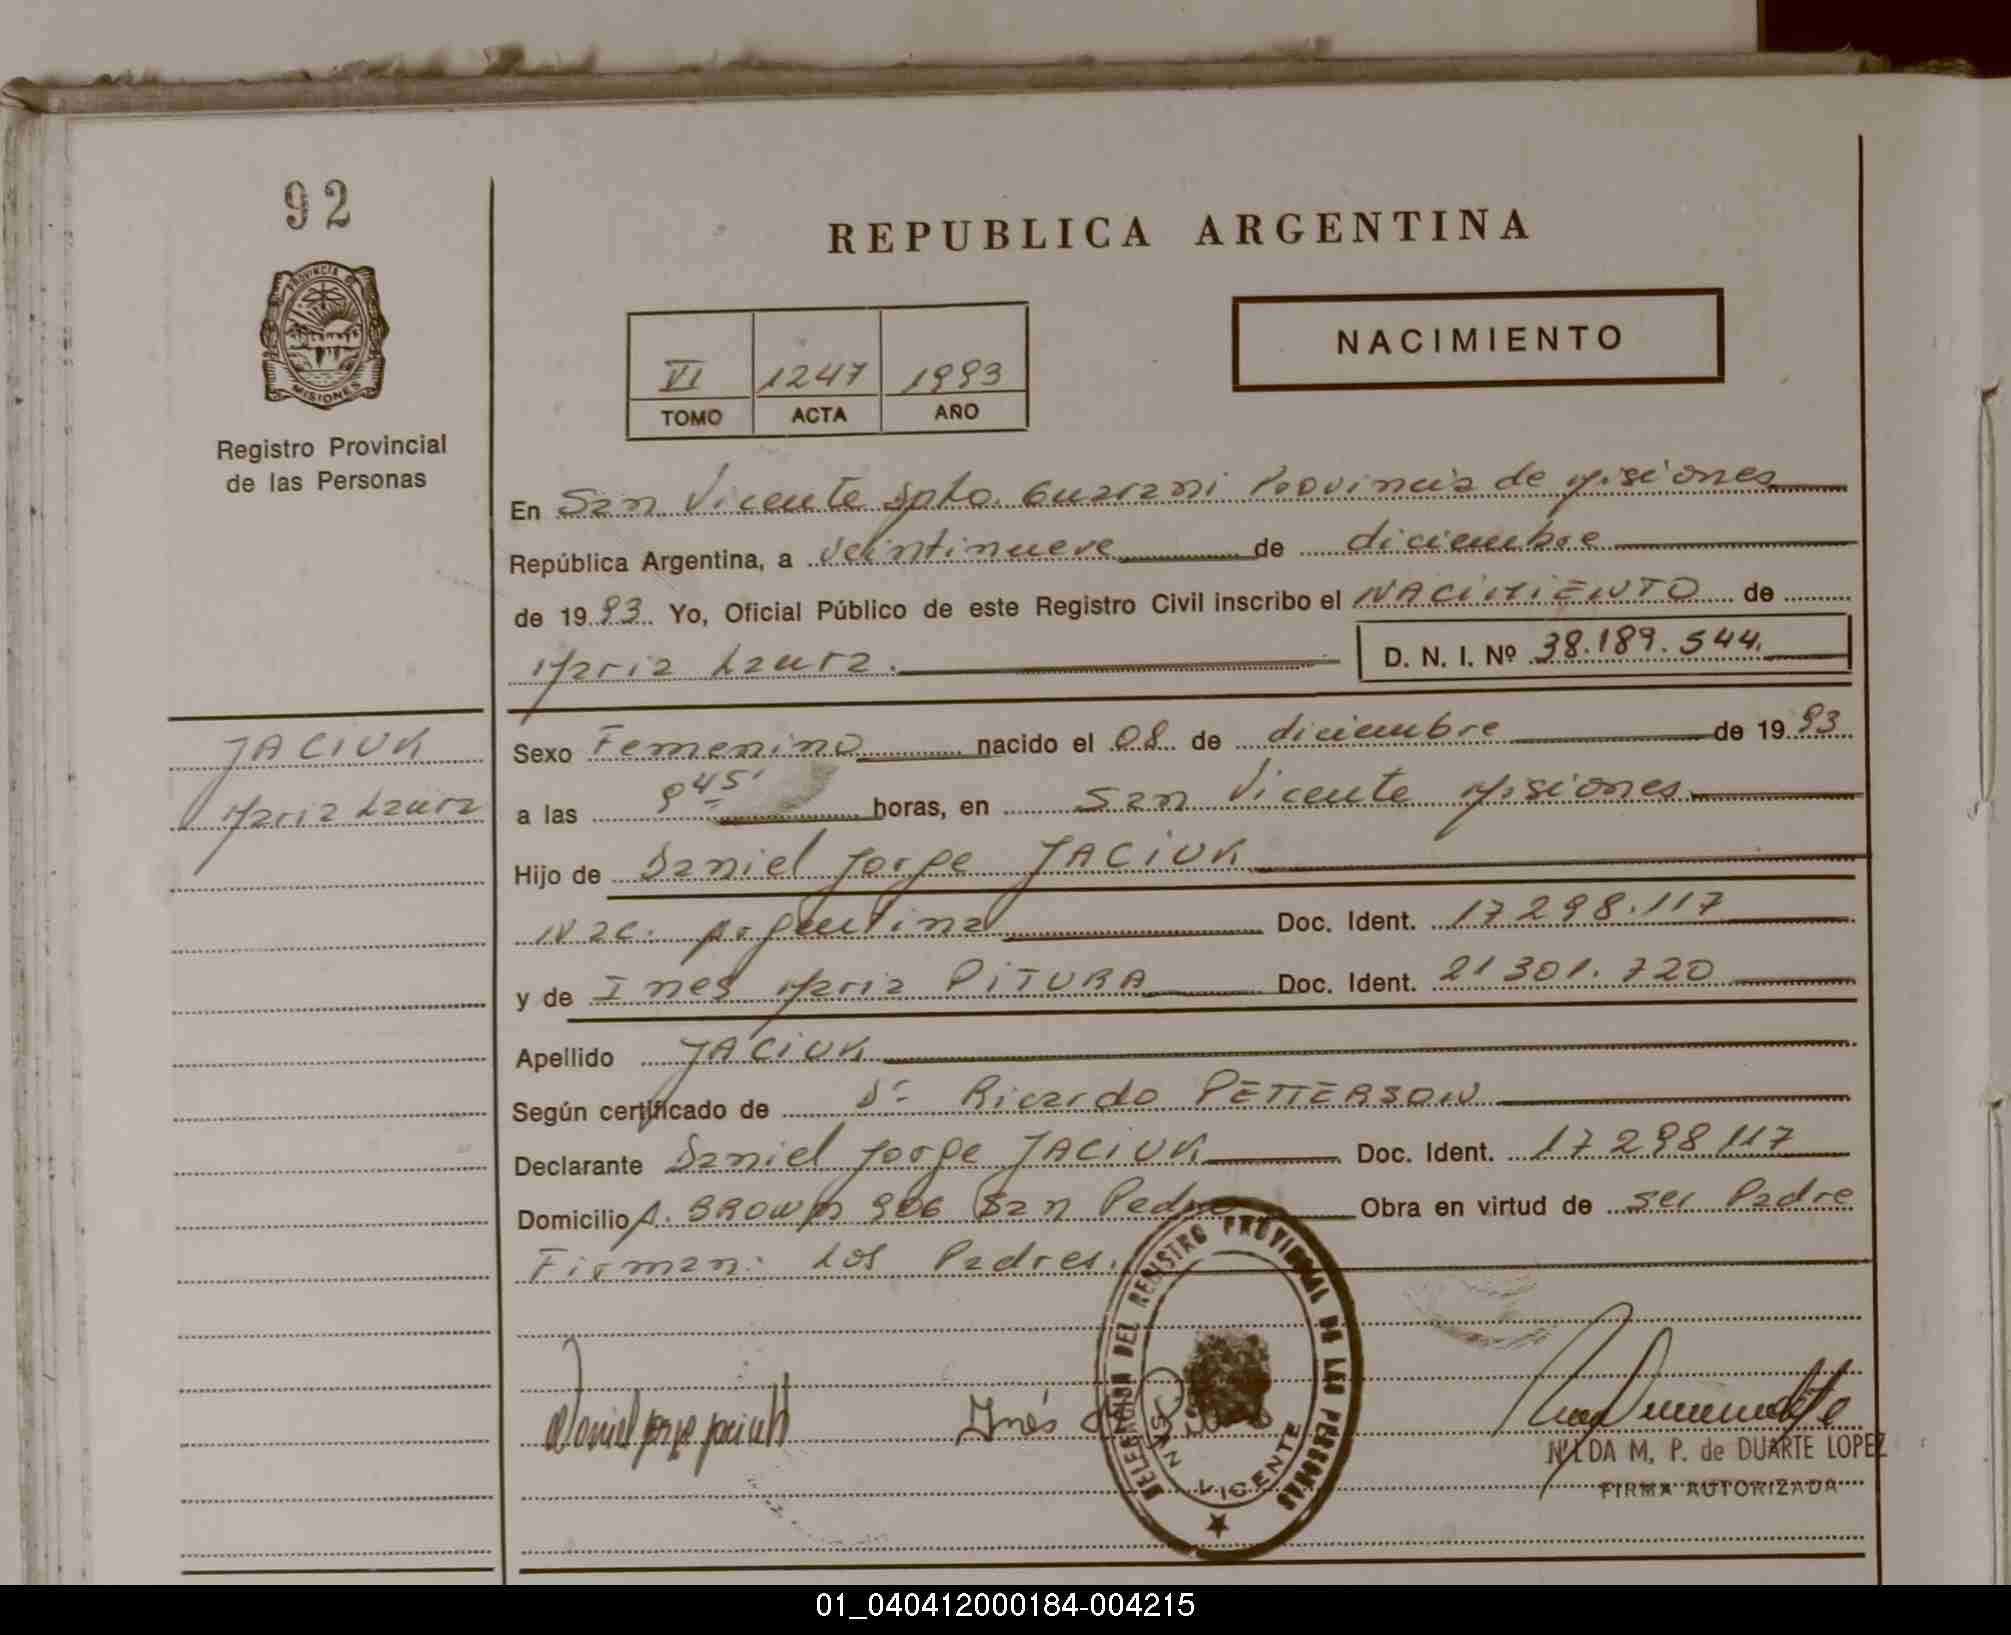 92
REPUBLICA ARGENTINA
PROVINCIA DE
MISIONES
NACIMIENTO
VI 1247 1993
TOMO ACTA AÑO
Registro Provincial
de las Personas
En San Vicente Dpto. Guarani Provincia de Misiones
República Argentina, a veintinueve de diciembre
de 1993. Yo, Oficial Público de este Registro Civil inscribo el NACIMIENTO de
Maria Laura. D. N. I. Nº 38.189.544.
JACIUK
Maria Laura
Sexo Femenino nacido el 08 de diciembre de 1993
a las 9 45' horas, en San Vicente Misiones
Hijo de Daniel Jorge JACIUK
Nac. Argentina Doc. Ident. 17298.117
y de Ines Maria PITURA Doc. Ident. 21301.720
Apellido JACIUK
Según certificado de Dr. Ricardo PETTERSON
Declarante Daniel Jorge JACIUK Doc. Ident. 17298117
Domicilio A. BROWN 906 San Pedro Obra en virtud de ser Padre
Firman: Los Padres.
DELEGACION DEL REGISTRO PROVINCIAL DE LAS PERSONAS
SAN VICENTE
Daniel Jorge Jaciuk
Inés
NILDA M. P. de DUARTE LOPEZ
FIRMA AUTORIZADA
01_040412000184-004215